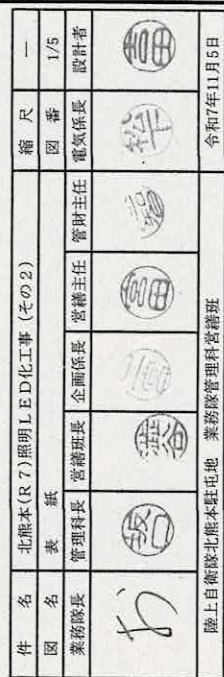 件 名 北熊本(R7)照明LED化工事(その2) 縮 尺 ―
図 名 表 紙 図 番 1/5
業務隊長 管理科長 営繕班長 企画係長 営繕主任 管財主任 電気係長 設計者
陸上自衛隊北熊本駐屯地 業務隊管理科営繕班 令和7年11月5日